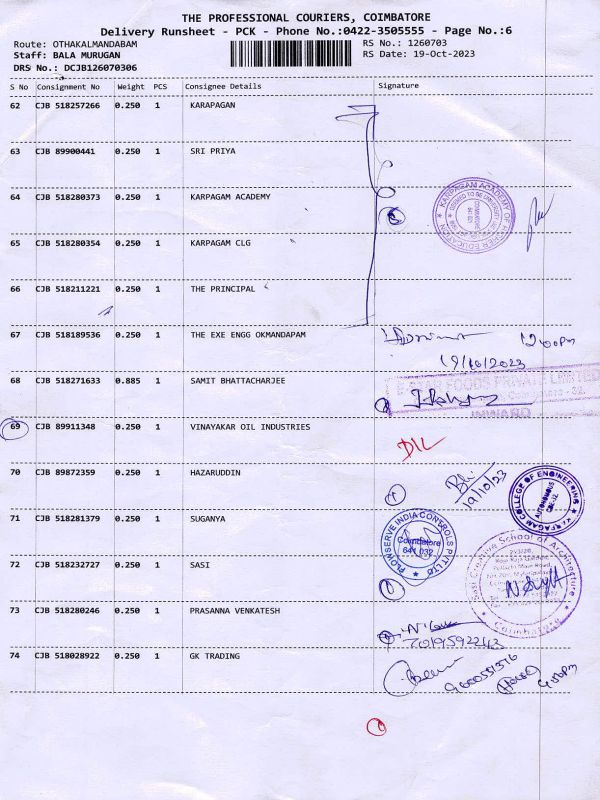 THE PROFESSIONAL COURIERS, COIMBATORE
Delivery Runsheet - PCK - Phone No.:0422-3505555 - Page No.:6
Route: OTHAKALMANDABAM RS No.: 1260703
Staff: BALA MURUGAN RS Date: 19-Oct-2023
DRS No.: DCJB126070306
S No Consignment No Weight PCS Consignee Details Signature
62 CJB 518257266 0.250 1 KARAPAGAN
63 CJB 89900441 0.250 1 SRI PRIYA
64 CJB 518280373 0.250 1 KARPAGAM ACADEMY
KARPAGAM ACADEMY OF HIGHER EDUCATION
65 CJB 518280354 0.250 1 KARPAGAM CLG
66 CJB 518211221 0.250 1 THE PRINCIPAL
67 CJB 518189536 0.250 1 THE EXE ENGG OKMANDAPAM
12:00pm
19/10/2023
68 CJB 518271633 0.885 1 SAMIT BHATTACHARJEE
FOODS PRIVATE LIMITED
INWARD
69 CJB 89911348 0.250 1 VINAYAKAR OIL INDUSTRIES
D/L
70 CJB 89872359 0.250 1 HAZARUDDIN
19/10/23
KARPAGAM COLLEGE OF ENGINEERING
AUTONOMOUS
71 CJB 518281379 0.250 1 SUGANYA
FLOWSERVE INDIA CONTROLS PVT LTD
Coimbatore
641 032
72 CJB 518232727 0.250 1 SASI
Creative School of Architecture
73 CJB 518280246 0.250 1 PRASANNA VENKATESH
74 CJB 518028922 0.250 1 GK TRADING
9600551516